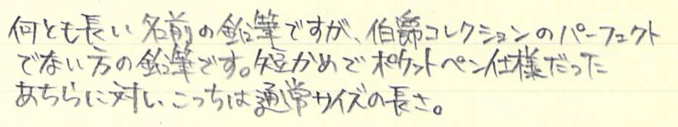 何とも長い名前の鉛筆ですが、伯爵コレクションのパーフェクト
でない方の鉛筆です。短かめでポケットペン仕様だった
あちらに対し、こっちは通常サイズの長さ。